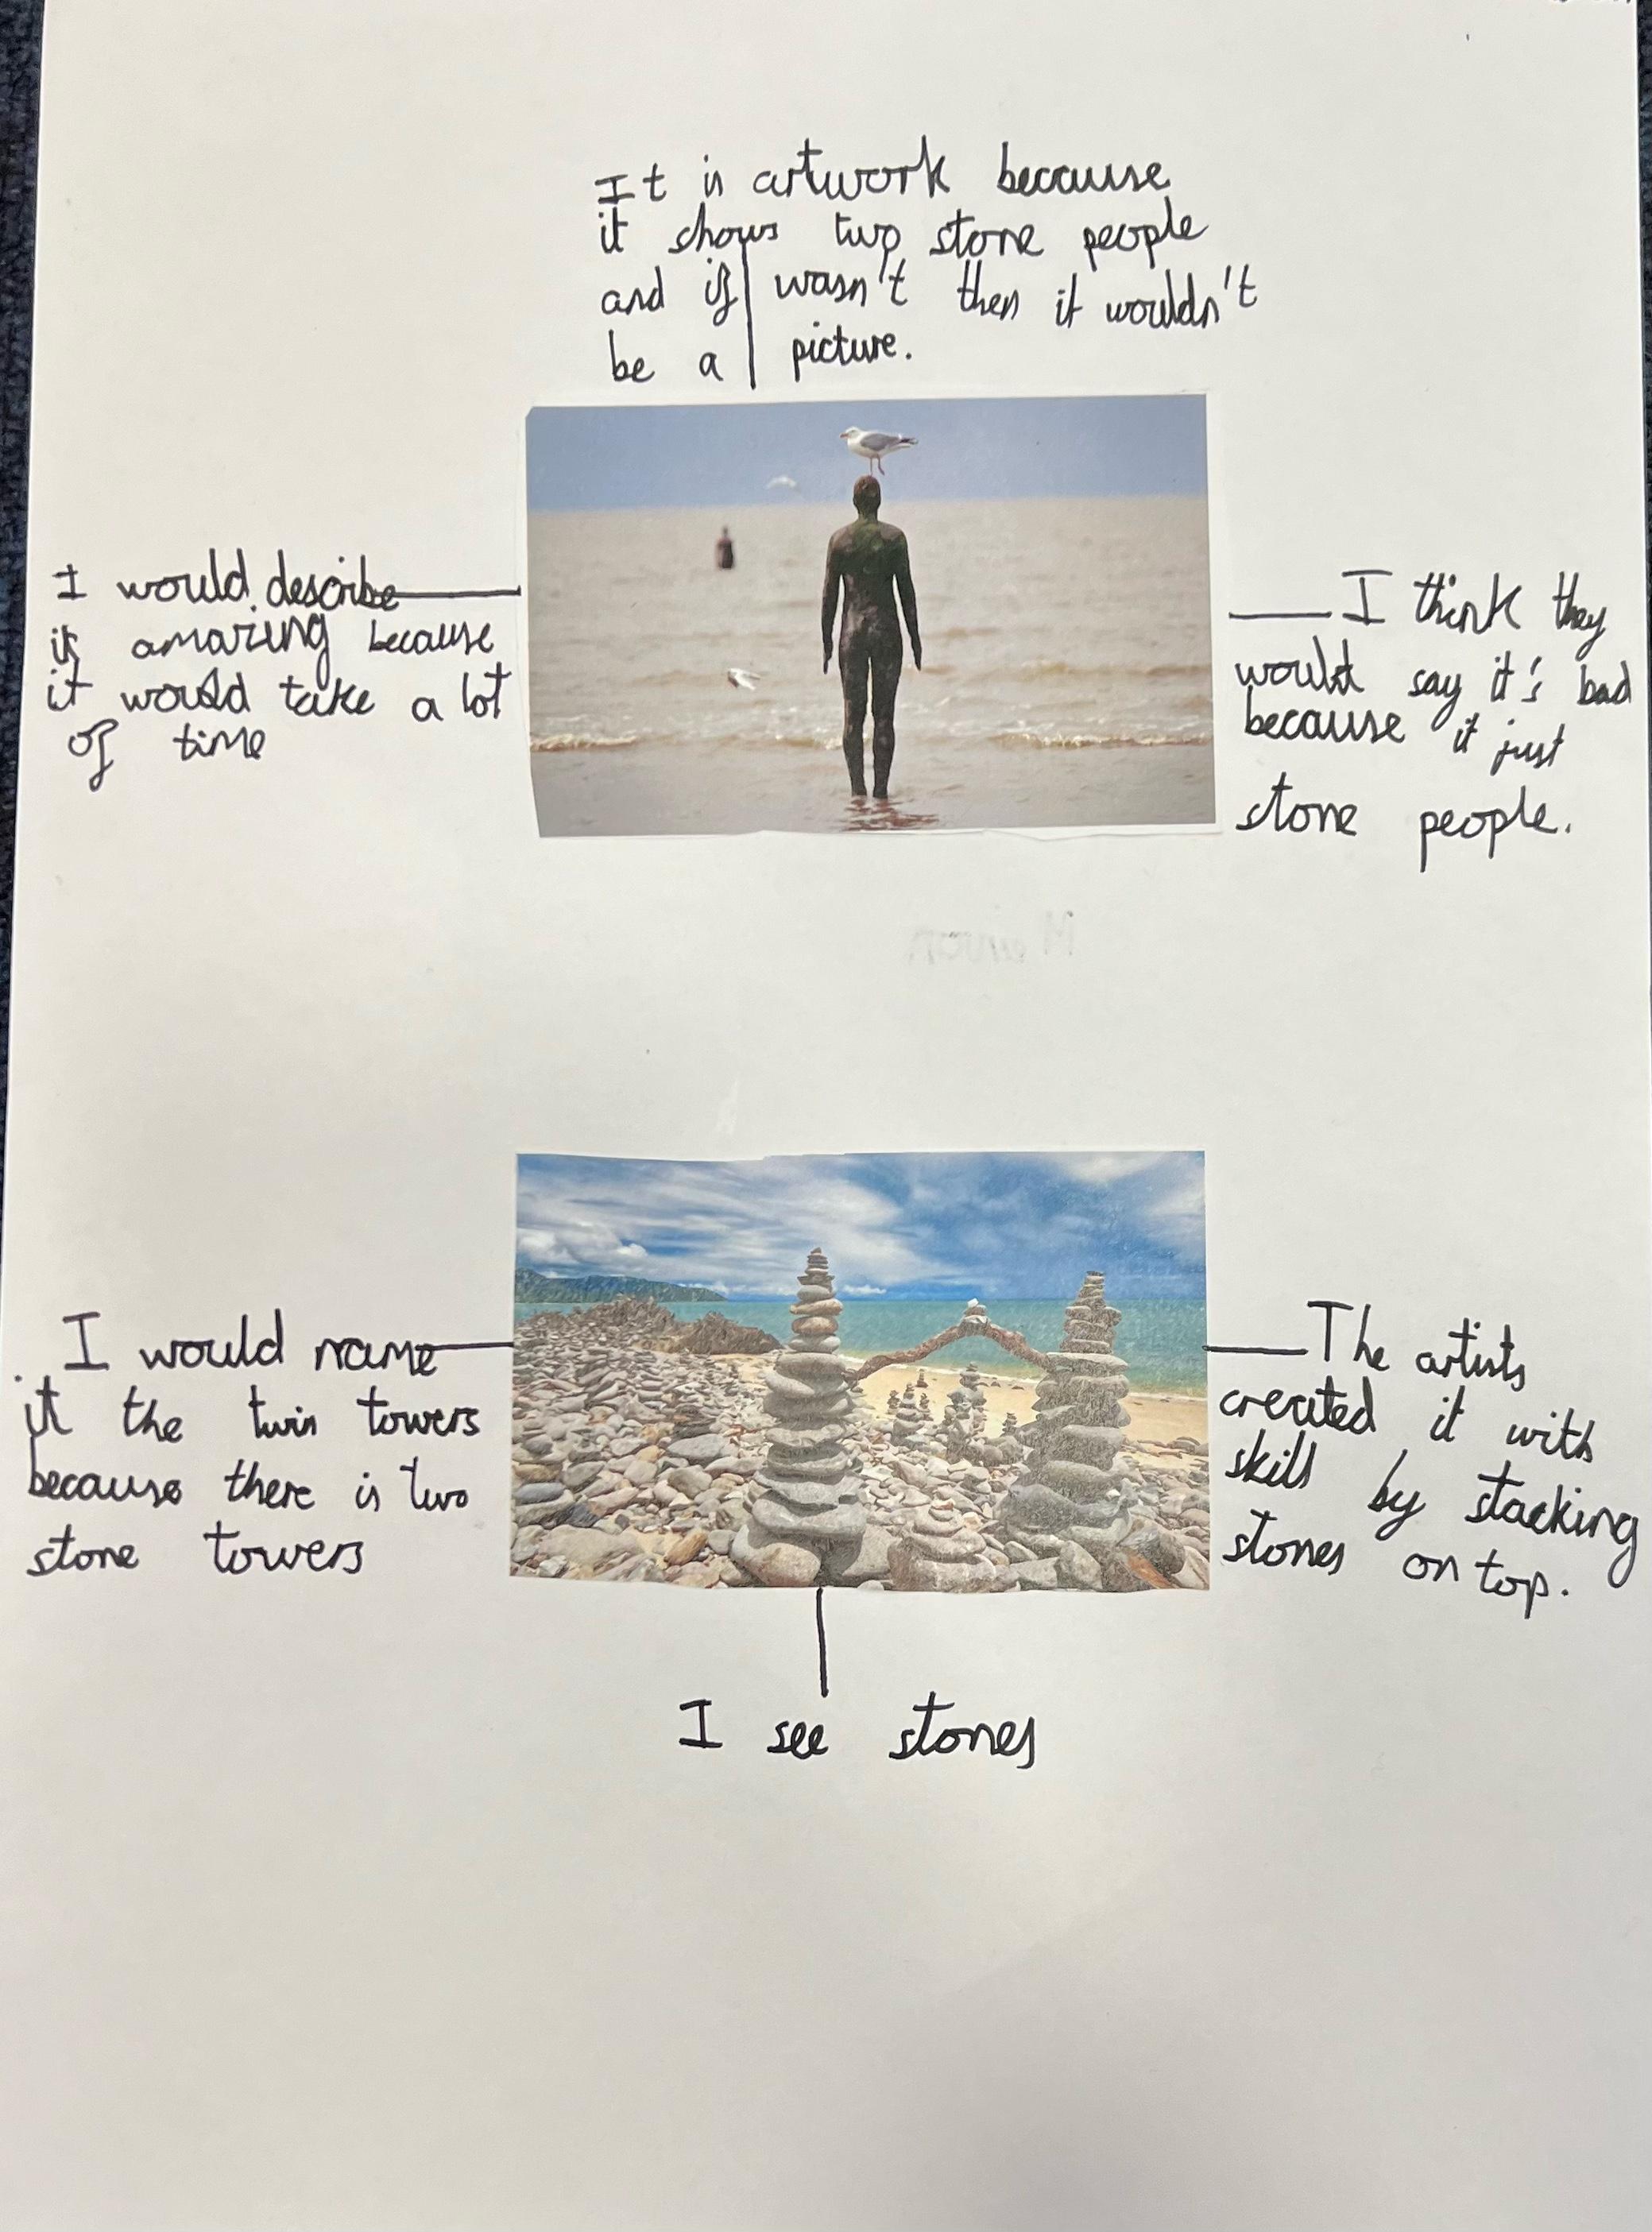 It is artwork because
it shows two stone people
and if wasn't then it wouldn't
be a picture.
I would describe
it amazing because
it would take a lot
of time
I think they
would say it's bad
because it just
stone people.
I would name
it the twin towers
because there is two
stone towers
The artists
created it with
skill by stacking
stones on top.
I see stones